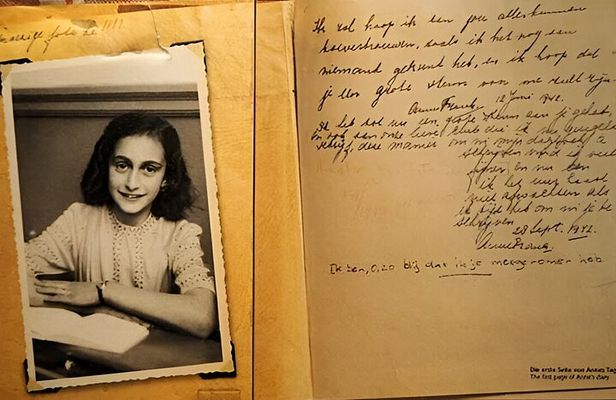 foto hè !!!!
Ik zal hoop ik aan jou alles kunnen
toevertrouwen, zoals ik het nog aan
niemand gekund heb, en ik hoop dat
je een grote steun voor me zult zijn.
Anne Frank. 12 Juni 1942.
Ik heb tot nu een grote steun aan je gehad,
en ook aan onze lieve club die ik nu geregeld
schrijf, deze manier om in mijn dagboek te
schrijven vind ik veel
fijner en nu kan
ik het uur haast
niet afwachten als
ik tijd heb om in je te
schrijven.
28 Sept. 1942.
Anne Frank.
Ik ben, o, zo blij dat ik je meegenomen heb.
Die erste Seite von Annes Tag
The first page of Anne's diary